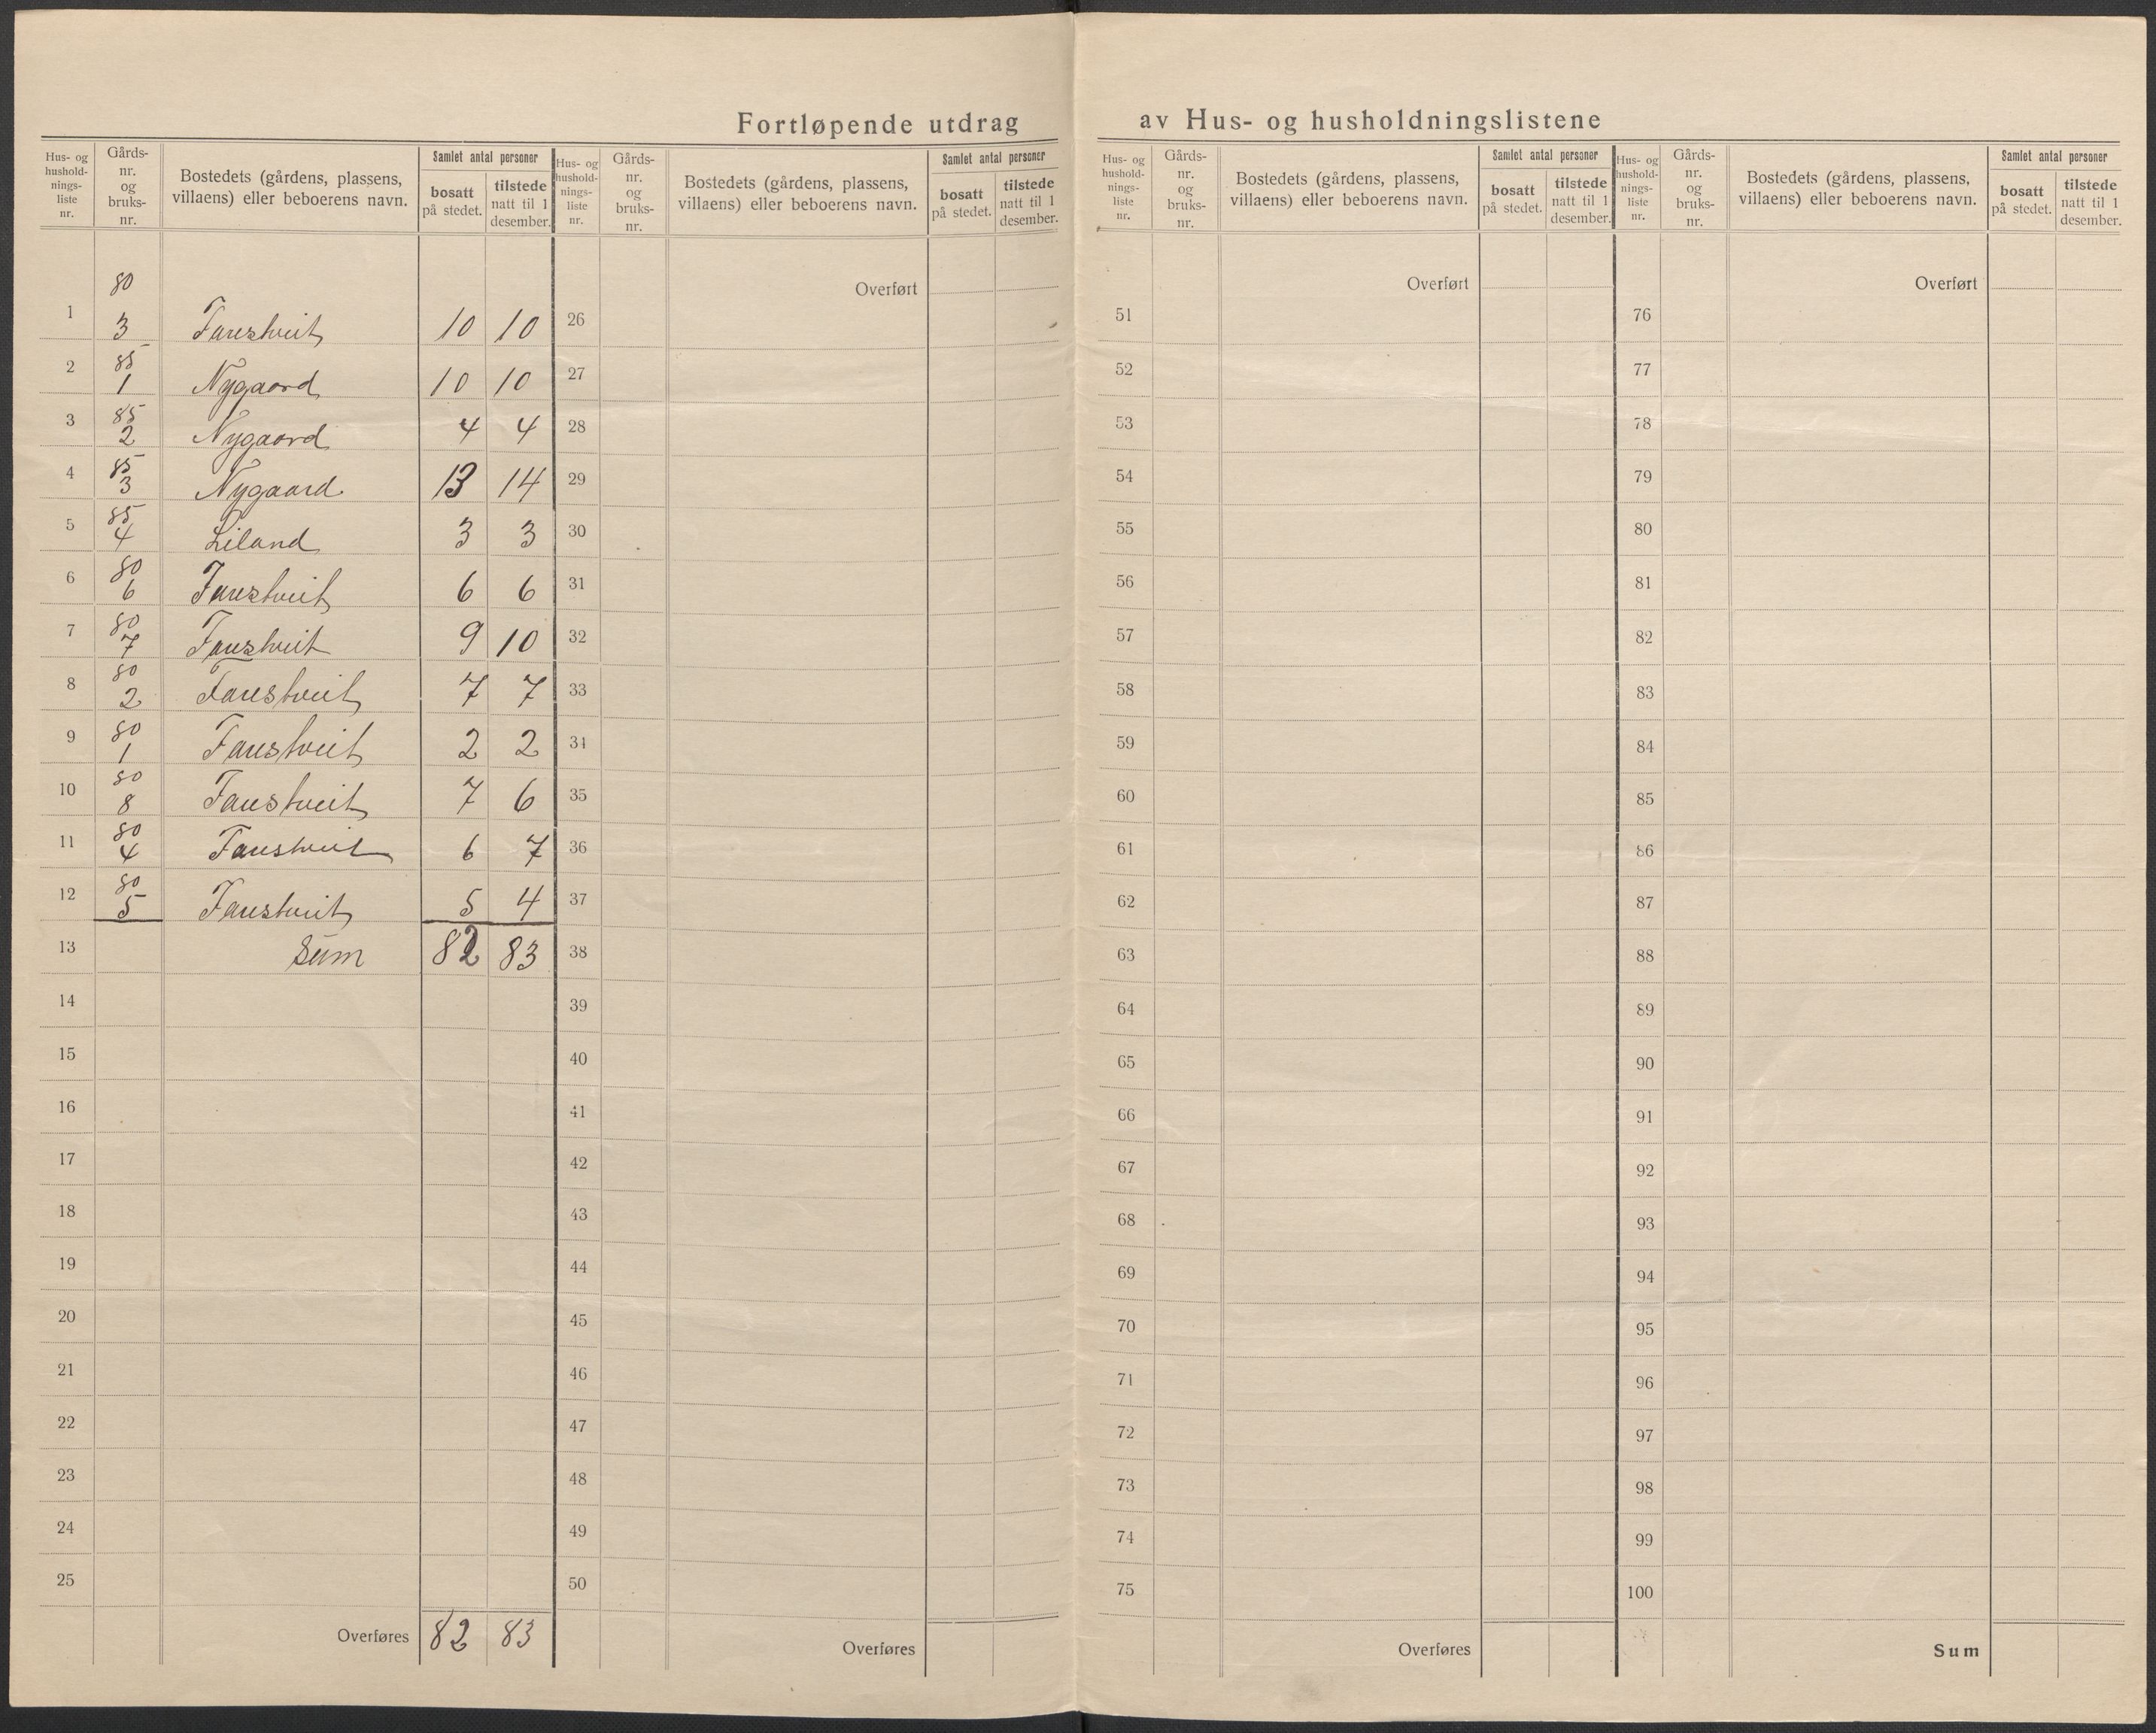 Fortløpende utdrag av Hus- og husholdningslistene
Hus- og hushold-nings-liste nr. Gårds-nr. og bruks-nr. Bostedets (gårdens, plassens, villaens) eller beboerens navn. Samlet antal personer bosatt på stedet. tilstede natt til 1 desember.
1 80 3 Farestveit 10 10
2 85 1 Nygaard 10 10
3 85 2 Nygaard 4 4
4 85 3 Nygaard 13 14
5 85 4 Liland 3 3
6 80 6 Farestveit 6 6
7 80 7 Farestveit 9 10
8 80 2 Farestveit 7 7
9 80 1 Farestveit 2 2
10 80 8 Farestveit 7 6
11 80 4 Farestveit 6 7
12 80 5 Farestveit 5 4
13 Sum 82 83
14
15
16
17
18
19
20
21
22
23
24
25
Overføres 82 83
Hus- og hushold-nings-liste nr. Gårds-nr. og bruks-nr. Bostedets (gårdens, plassens, villaens) eller beboerens navn. Samlet antal personer bosatt på stedet. tilstede natt til 1 desember.
Overført
26
27
28
29
30
31
32
33
34
35
36
37
38
39
40
41
42
43
44
45
46
47
48
49
50
Overføres
Hus- og hushold-nings-liste nr. Gårds-nr. og bruks-nr. Bostedets (gårdens, plassens, villaens) eller beboerens navn. Samlet antal personer bosatt på stedet. tilstede natt til 1 desember.
Overført
51
52
53
54
55
56
57
58
59
60
61
62
63
64
65
66
67
68
69
70
71
72
73
74
75
Overføres
Hus- og hushold-nings-liste nr. Gårds-nr. og bruks-nr. Bostedets (gårdens, plassens, villaens) eller beboerens navn. Samlet antal personer bosatt på stedet. tilstede natt til 1 desember.
Overført
76
77
78
79
80
81
82
83
84
85
86
87
88
89
90
91
92
93
94
95
96
97
98
99
100
Sum